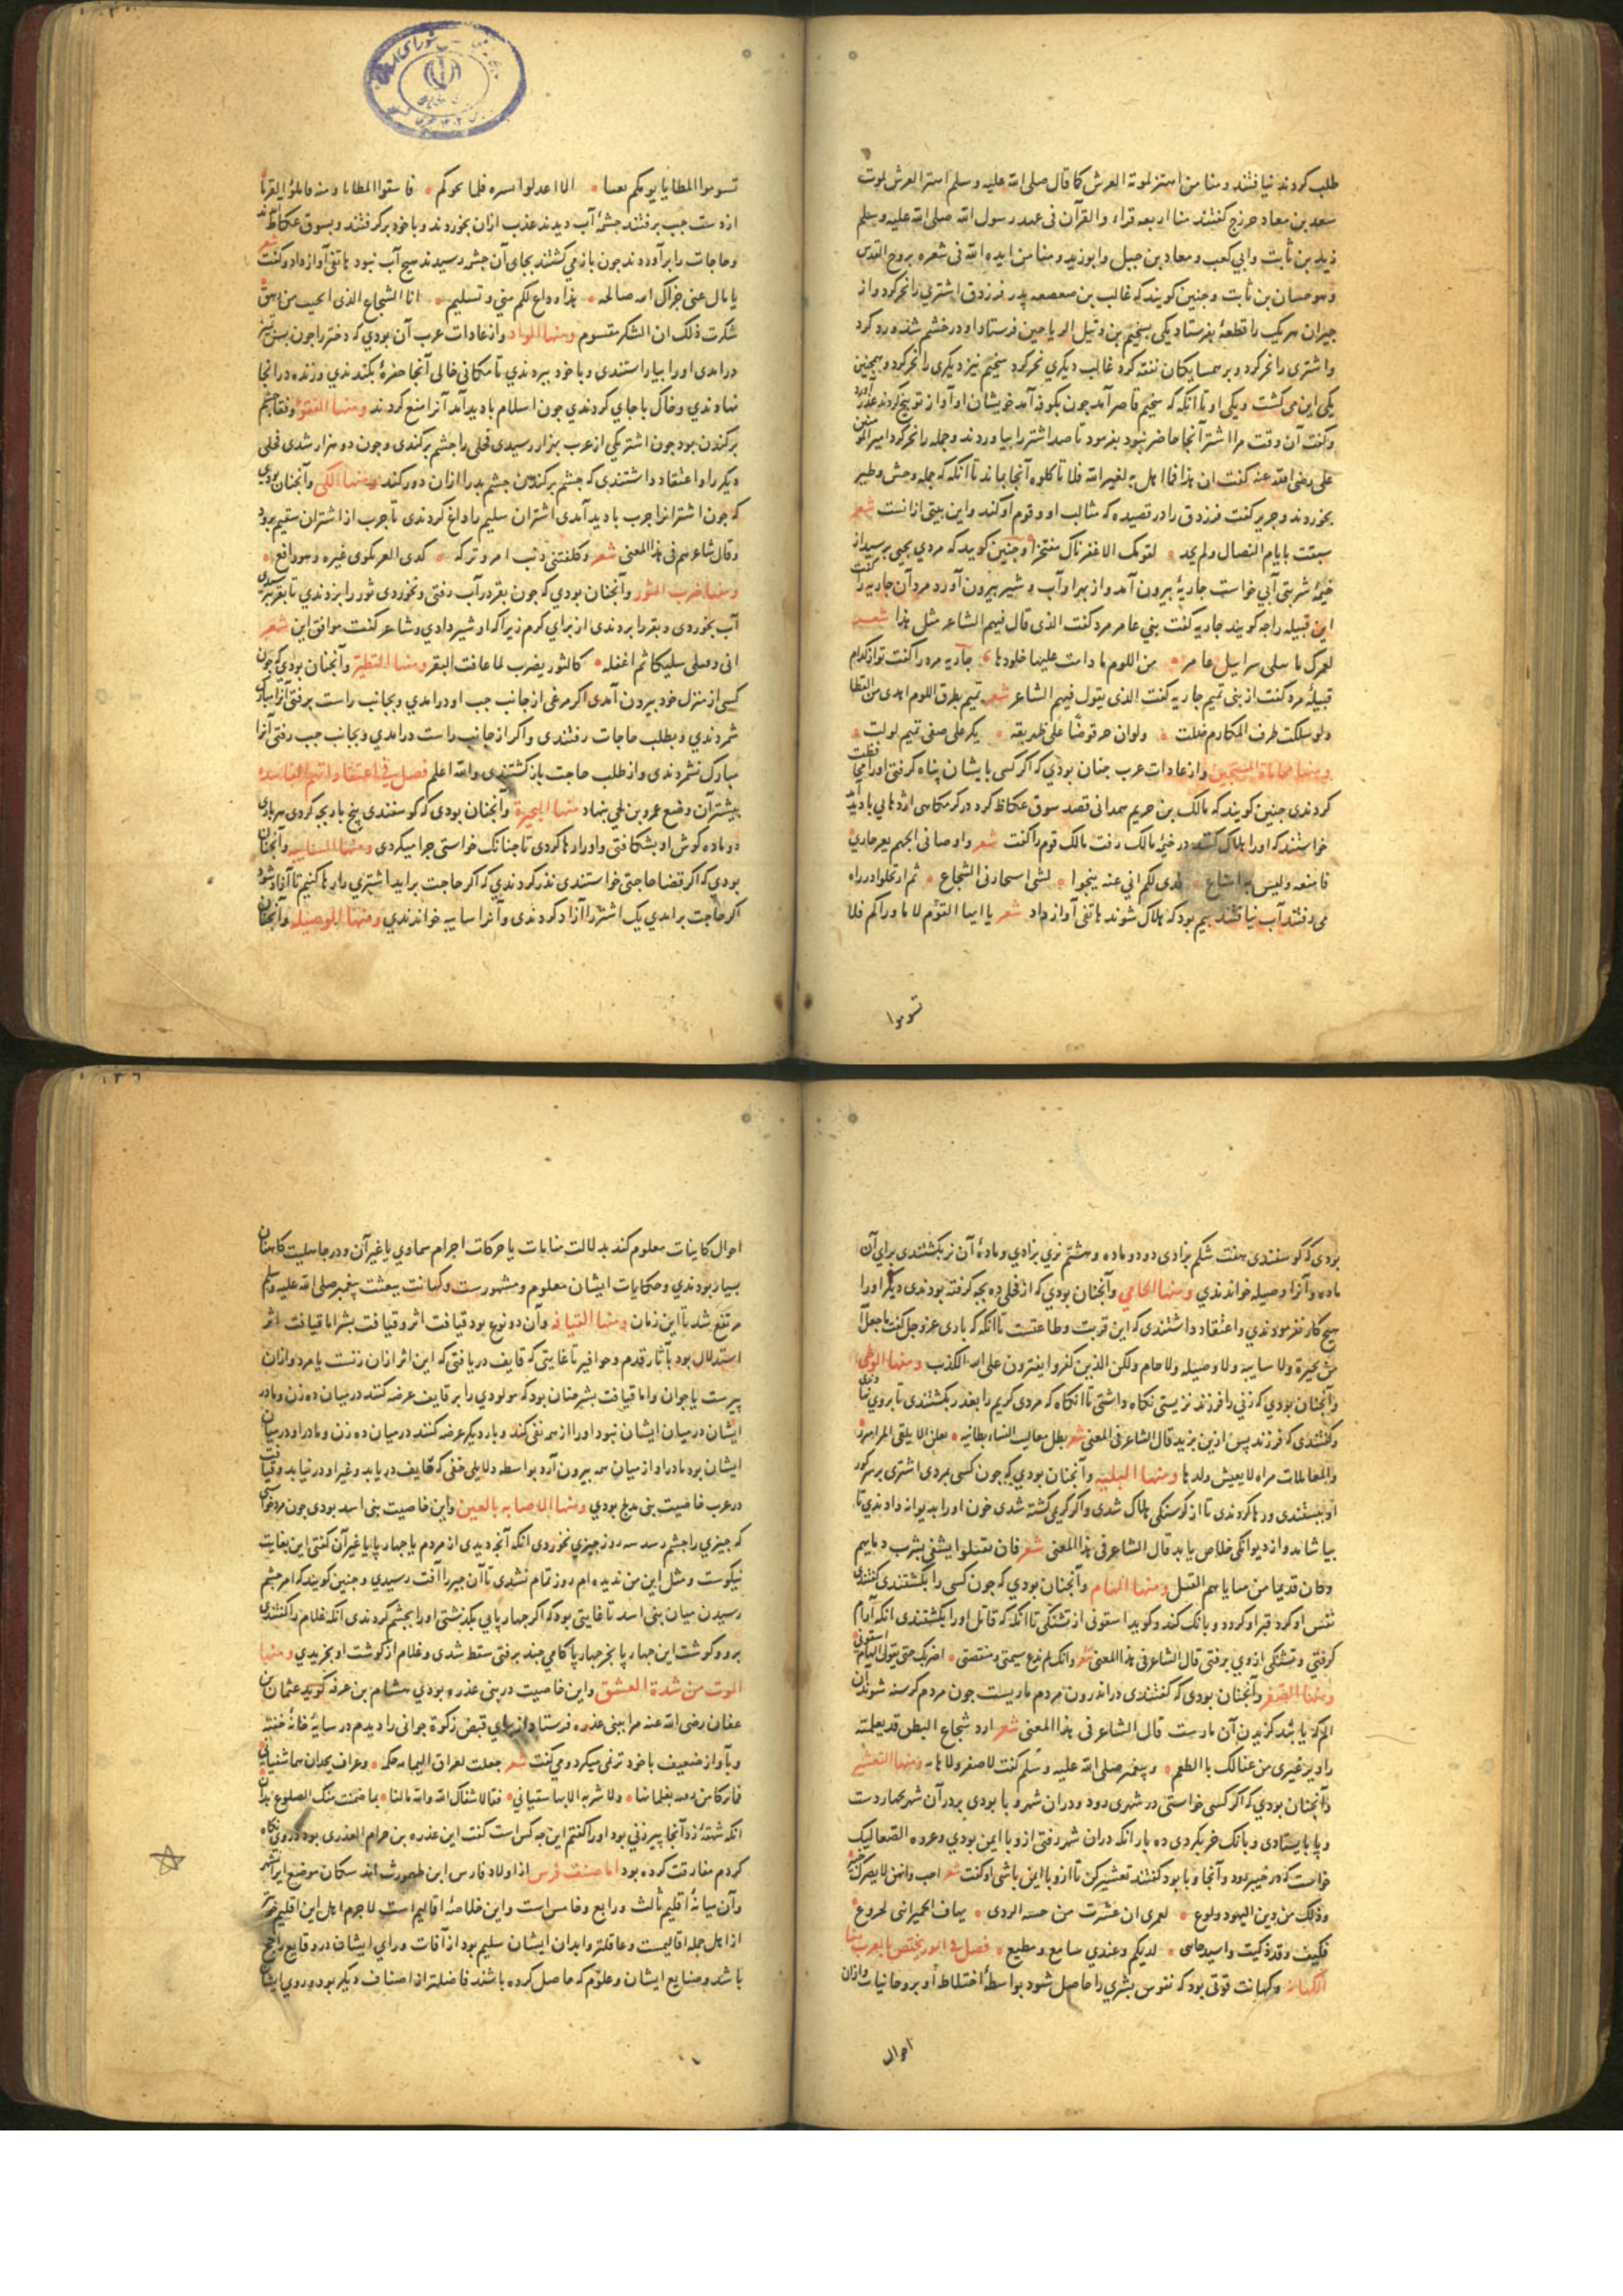 طلب کردند نیافتند ومنا من اهتز لموته العرش کما قال صلی الله علیه وسلم اهتز العرش لموت
سعد بن معاد خرزج کفتند منا اربعه قراء والقرآن فی عهد رسول الله صلی الله علیه وسلم
زید بن ثابت وابی کعب ومعاد بن جبل وابوزید ومنا من ایده الله فی شعره بروح القدس
وهو حسان بن ثابت وچنین کویند که غالب بن صعصعه پدر فرزدق اشتری را نحر کرد واز
جیران هر یک را قطعهٔ بفرستاد یکی بسخیم بن وثیل الریاحین فرستاد او در خشم شد ورد کرد
واشتری را نحر کرد وبر همسایکان نفقه کرد غالب دیکری نحر کرد سخیم نیز دیکری را نحر کرد وهمچنین
یکی این می کشت ویکی او تا انکه که سخیم قاصر آمد چون بکوفه آمد خویشان او آواز توبیخ کردند عذر آورد
وکفت آن وقت مرا اشتر آنجا حاضر نبود بفرمود تا صد اشتر را بیاوردند وجمله را نحر کرد امیر المومنین
علی رضی الله عنه کفت ان هذا مما اهل به لغیر الله فلا تاکلوه آنجا بماند تا آنکه که جمله وحش وطیر
بخوردند وجریر کفت فرزدق را در قصیده که مثالب او وقوم او کند واین بیتی از انست شعر
وچنین کویند که مردی بحیی برسید از
خیمهٔ شربتی آبی خواست جاریهٔ بیرون آمد واز بهر او آب وشیر بیرون آورد مرد آن جاریه را کفت
این قبیله را چه کویند جاریه کفت بنی عامر مرد کفت الذی قال فیهم الشاعر مثل هذا شعر
من اللوم ما دامت علیها جلودها جاریه مرد را کفت تو از کدام
قبیلهٔ مرد کفت از بنی تمیم جاریه کفت الذی یقول فیهم الشاعر شعر تمیم بطرق اللوم اهدی من القطا
ولو سلکت طرف المکارم ضلت ولو ان حرقوضا علی ظهر بقه یکر علی صفی تمیم لولت
ومنها محاماة المستجیر واز عادات عرب چنان بودی که اکر کسی با یشان پناه کرفتی اورا محافظت
کردندی چنین کویند که مالک بن حریم همدانی قصد سوق عکاظ کرد در کرمکاهی اژدهایی بادید آمد
خواستند که اورا هلاک کنند در خیمهٔ مالک رفت مالک قوم را کفت شعر واوصانی
می رفتند آب نیافتند بیم بود که هلاک شوند هاتفی آواز داد شعر یا ایها القوم لا ماء وراکم فلا
تسوموا
تسوموا المطایا یومکم
از دست چپ برفتند چشمهٔ آب دیدند عذب ازان بخوردند وبا خود برکرفتند وبسوق عکاظ آمدند
وحاجات را برآوردند چون باز می کشتند بجای آن چشمه رسیدند هیچ آب نبود هاتفی آواز داد وکفت شعر
یا مال عنی جزاک الله صالحه هذا وداع لکم منی وتسلیم انا الشجاع الذی
شکرت ذلک ان الشکر مقسوم ومنها الواد واز عادات عرب آن بودی که دختر را چون بسن تمیز
درامدی اورا بیاراستندی وبا خود ببردندی تا مکانی خالی آنجا حفرهٔ بکندندی وزنده درانجا
نهادندی وخاک با جای کردندی چون اسلام بادید آمد آنرا منع کردند ومنها
برکندن بود چون اشتر یکی از عرب بهزار رسیدی فحلی را چشم برکندی وچون دو هزار شدی فحلی
دیکر را واعتقاد داشتندی که چشم برکندن چشم بد را ازان دور کند ومنها الکی وآنچنان بودی
که چون اشترانرا جرب بادید آمدی اشتران سلیم را داغ کردندی تا جرب از اشتران سقیم برود
وقال شاعرهم فی هذا المعنی شعر وکلفتنی ذنب امرء ترکه کذی العر یکوی غیره وهو رافع
ومنها ضرب الثور وآنچنان بودی که چون بقر در آب رفتی ونخوردی ثور را بزدندی تا بقر بترسیدی
آب بخوردی وبقر را نزدندی از برای کرم زیرا که او شیر دادی وشاعر کفت موافق این شعر
انی وقتلی سلیکا ثم اعقله کالثور یضرب لما عافت البقر ومنها التطیر وآنچنان بودی که چون
کسی از منزل خود بیرون آمدی اکر مرغی از جانب چپ او درامدی وبجانب راست برفتی آنرا مبارک
شمردندی وبطلب حاجات رفتندی واکر از جانب راست درامدی وبجانب چپ رفتی آنرا
مبارک نشمردندی واز طلب حاجت باز کشتندی والله اعلم فصل فی اعتقاداتهم الفاسده
بیشتر آن وضع عمرو بن لحی نهاد منها البحیرة وآنچنان بودی که کوسفندی پنج بار بچه کردی هر باری
دو ماده کوش او بشکافتی واورا رها کردی تا چنانک خواستی چرا میکردی ومنها السایبه وآنچنان
بودی که اکر قضا حاجتی خواستندی نذر کردندی که اکر حاجت براید اشتری را رها کنیم تا آزاد شود
اکر حاجت برامدی یک اشتر را آزاد کردندی وآنرا سایبه خواندندی ومنها الوصیله وآنچنان
بودی که کوسفندی هفت شکم بزادی دو دو ماده وهشتم نری بزادی ومادهٔ آن نر نکشتندی برای آن
ماده وآنرا وصیله خواندندی ومنها الحامی وآنچنان بودی که از فحلی ده بچه کرفته بودندی دیکر اورا
هیچ کار نفرمودندی واعتقاد داشتندی که این قربت وطاعتست تا انکه که باری عز وجل کفت ما جعل الله
من بحیرة ولا سایبه ولا وصیله ولا حام ولکن الذین کفروا یفترون علی الله الکذب ومنها
وآنچنان بودی که زنی را فرزند نزیستی نکاه داشتی تا انکاه که مردی کریم را بغدر بکشتندی تا بروی
وکفتندی که فرزند پس ازین بزید قال الشاعر فی المعنی شعر
ومنها البلیه وآنچنان بودی که چون کسی بمردی اشتری بر سر کور
او ببستندی ورها کردندی تا از کرسنکی هلاک شدی واکر کریمی کشته شدی خون اورا بدیوانه دادندی تا
بیاشامد واز دیوانکی خلاص یابد قال الشاعر فی هذا المعنی شعر
ومنها الهام وآنچنان بودی که چون کسی را بکشتندی کفتندی
نفس او کرد قبر او کردد وبانک کند وکوید اسقونی از تشنکی تا انکه که قاتل اورا بکشتندی انکه آرام
کرفتی وتشنکی ازوی برفتی قال الشاعر فی هذا المعنی شعر وانک لم تدع سبی ومنقصتی اضربک حتی یقول الهام اسقونی
ومنها الصفر وآنچنان بودی که کفتندی در اندرون مردم ماریست چون مردم کرسنه شوند آن
الم که یا بند کزیدن آن مارست قال الشاعر فی هذا المعنی شعر ارد شجاع البطن قد یعلمنه
واوثر غیری من عنالک باالطعم وپیغمبر صلی الله علیه وسلم کفت لا صفر ولا هامه ومنها التعشیر
وآنچنان بودی که اکر کسی خواستی در شهری رود ودران شهر وبا بودی بر در آن شهر چهار دست
وپا بایستادی وبانک خر بکردی ده بار انکه دران شهر رفتی از وبا ایمن بودی وعروه الصعالیک
خواست که در خیبر رود وآنجا وبا بود کفتند تعشیر کن تا از وبا ایمن باشی او کفت شعر
وذلک من دین الیهود ولوع لعمری ان عشرت من خشیه الردی نهاق الحمیر اننی لجزوع
فکیف وقد ذکیت لدیکم وعندی سامع ومطیع فصل فی امور یختص بالعرب منها
الکهانه وکهانت قوتی بود که نفوس بشری را حاصل شود بواسطهٔ اختلاط او بروحانیات وازان
احوال
احوال کاینات معلوم کند بدلالت منامات یا حرکات اجرام سماوی یا غیر آن ودر جاهلیت کاهنان
بسیار بودندی وحکایات ایشان معلوم ومشهورست وکهانت ببعثت پیغمبر صلی الله علیه وسلم
مرتفع شد تا این زمان ومنها القیافه وآن دو نوع بود قیافت اثر وقیافت بشر اما قیافت اثر
استدلال بود بآثار قدم وحوافر تا غایتی که قایف دریافتی که این اثر ازان زنست یا مرد وازان
پیرست یا جوان واما قیافت بشر چنان بود که مولودی را بر قایف عرضه کنند در میان ده زن ومادر
ایشان در میان ایشان نبود اورا از همه نفی کند وبار دیکر عرضه کنند در میان ده زن ومادر او در میان
ایشان بود مادر اورا از میان همه بیرون آرد بواسطه دلایلی خفی که قایف دریابد وغیر او درنیابد وقیافت
در عرب خاصیت بنی مدلج بودی ومنها الاصابه بالعین واین خاصیت بنی اسد بودی چون مرد خواستی
که چیزی را چشم رسد سه روز چیزی نخوردی انکه آنچه دیدی از مردم یا چهار پا یا غیر آن کفتی این بغایت
نیکوست ومثل این من ندیده ام روز تمام نشدی تا آن چیز را آفت رسیدی وچنین کویند که امر چشم
رسیدن میان بنی اسد تا غایتی بود که اکر چهار پایی بکذشتی اورا بچشم کردندی انکه غلام را کفتندی
برو وکوشت این چهار پا بخر چهار پا کامی چند برفتی سقط شدی وغلام از کوشت او بخریدی ومنها
الموت من شدة العشق واین خاصیت در بنی عذره بودی هشام بن عرفه کوید عثمان بن
عفان رضی الله عنه مرا ببنی عذره فرستاد از برای قبض زکوة جوانی را دیدم در سایهٔ خانهٔ خفته
وبآواز ضعیف با خود ترنمی میکرد ومی کفت شعر جعلت لعراف الیمامه حکمه وعراف نجدان هما شفیانی
فقالا شفاک الله والله مالنا بما ضمنت منک الضلوع یدان
انکه شهقهٔ زد آنجا پیرزنی بود اورا کفتم این چه کس است کفت این عذره بن حزام العذری بود در وی نکاه
کردم مفارقت کرده بود اما صنف فرس از اولاد فارس ابن طهمورث اند سکان موضع ایرانشهر
وآن میانهٔ اقلیم ثالث ورابع وخامس است واین خلاصهٔ اقالیم است لاجرم اهل این اقلیم
از اهل جمله اقالیمست وعاقلتر وابدان ایشان سلیم بود از آفات ورای ایشان در وقایع راجح
باشد وصنایع ایشان وعلوم که حاصل کرده باشند فاضلتر از اصناف دیکر بود وروی ایشان